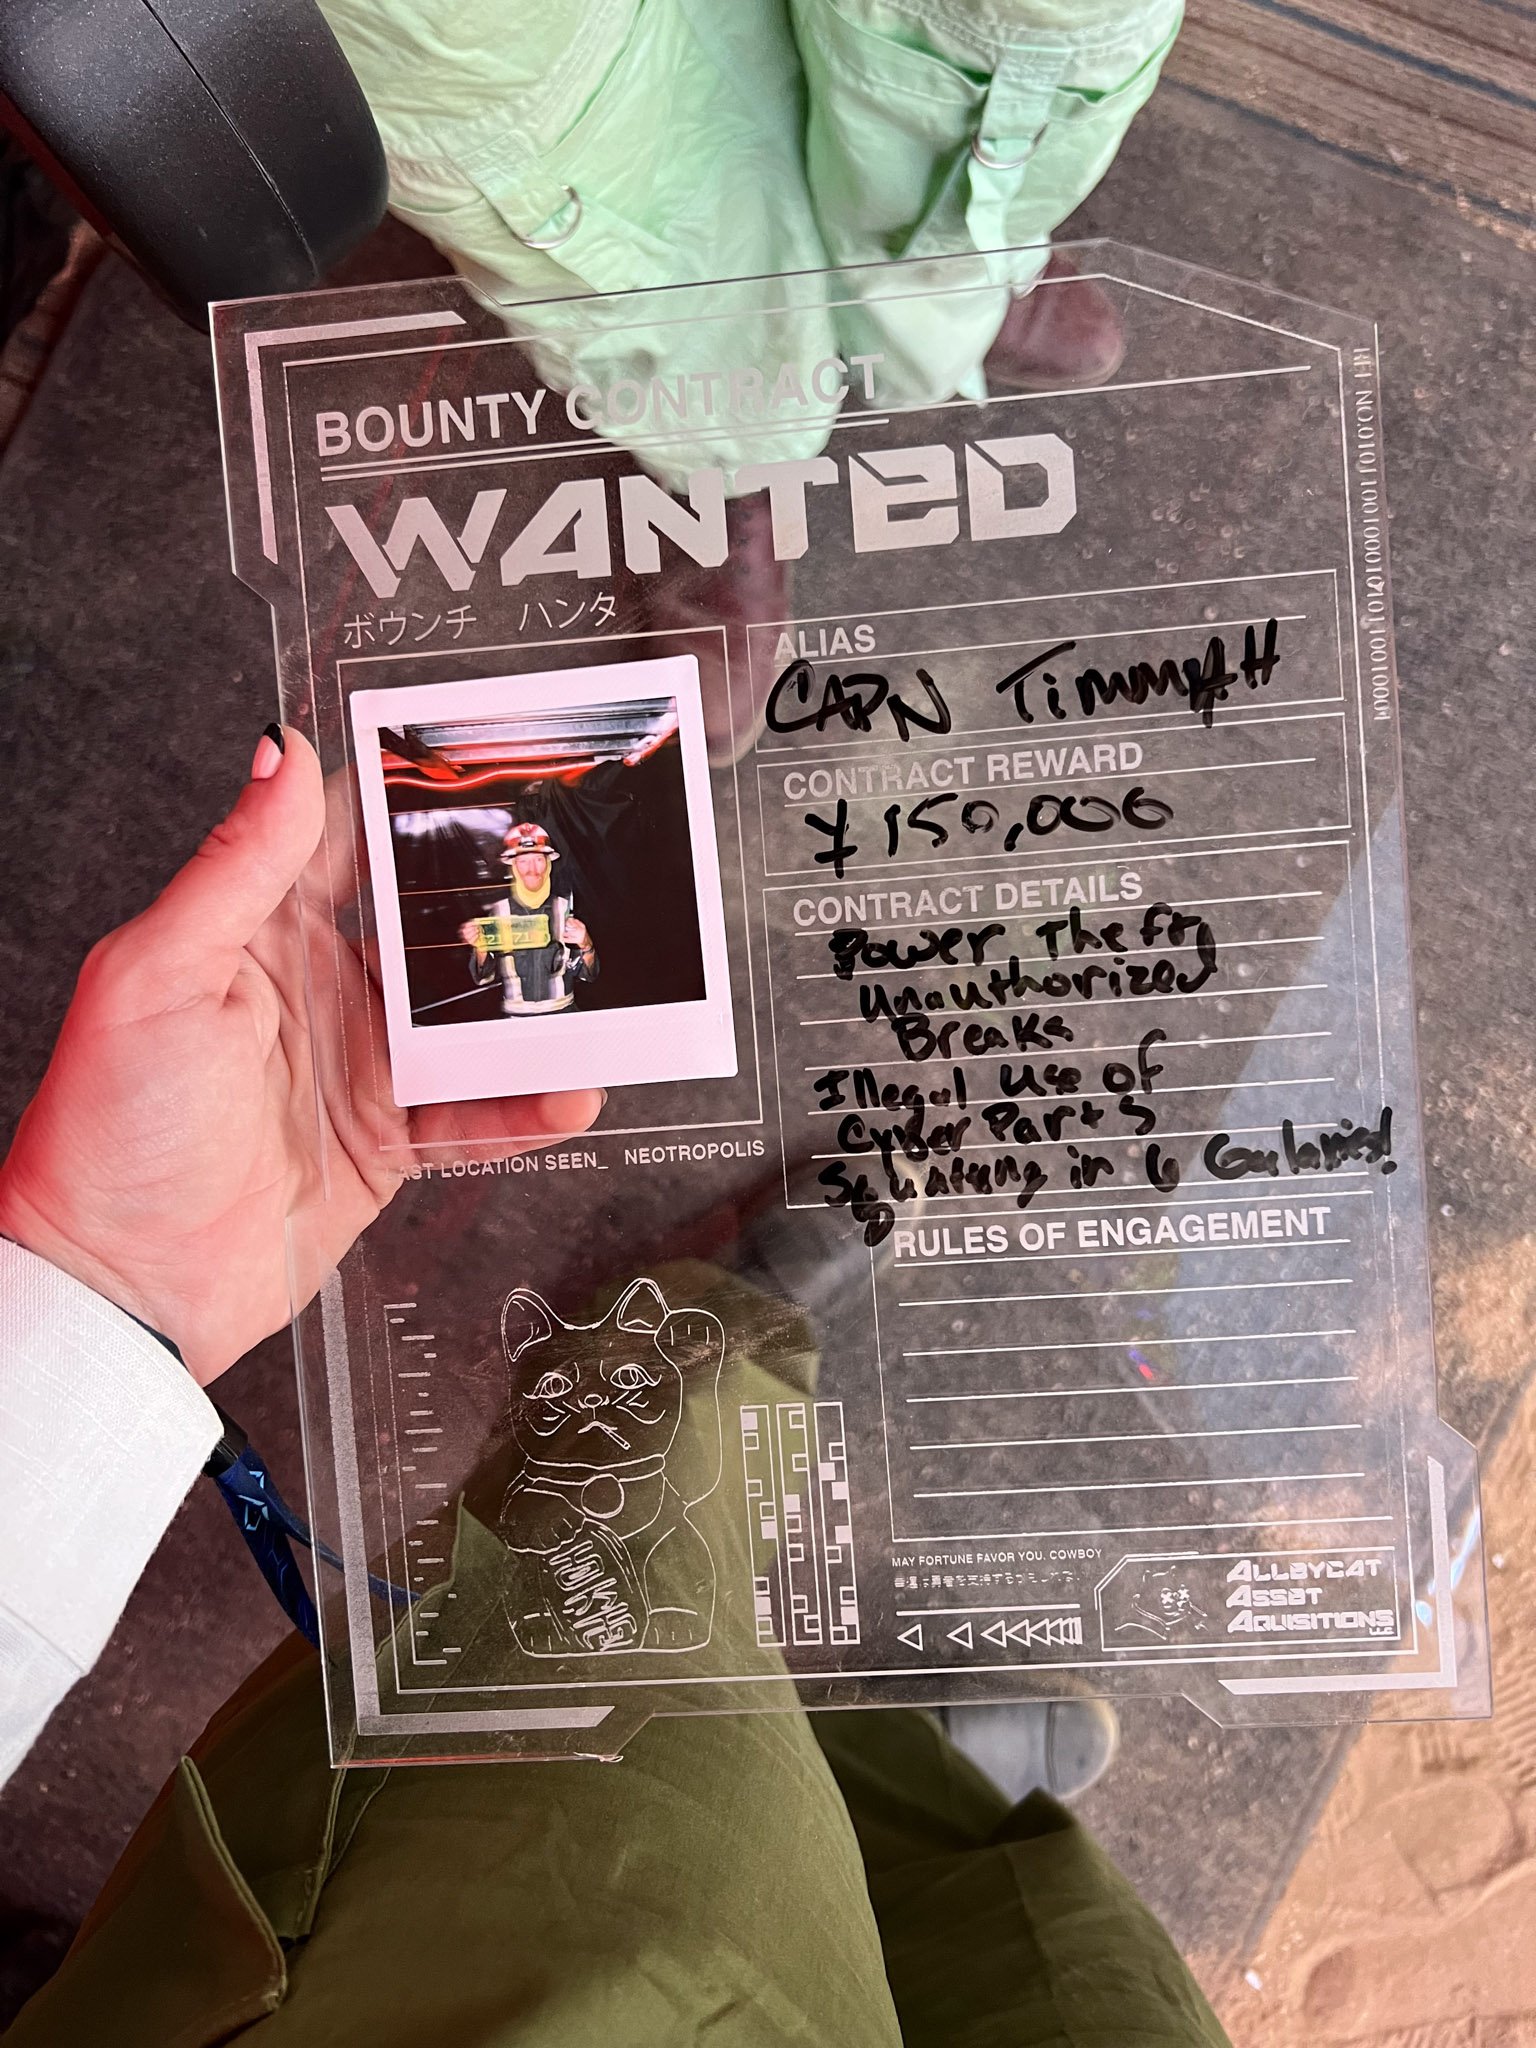 BOUNTY CONTRACT
WANTED
ボウンチ ハンタ
ALIAS
CAPN TIMMAH
CONTRACT REWARD
¥150,000
CONTRACT DETAILS
Power Theft
Unauthorized
Breaks
Illegal Use of
Cyber Parts
Squatting in 6 Galaxies!
LAST LOCATION SEEN_ NEOTROPOLIS
RULES OF ENGAGEMENT
MAY FORTUNE FAVOR YOU, COWBOY
ALLEYCAT
ASSET
AQUISITIONS
LLC